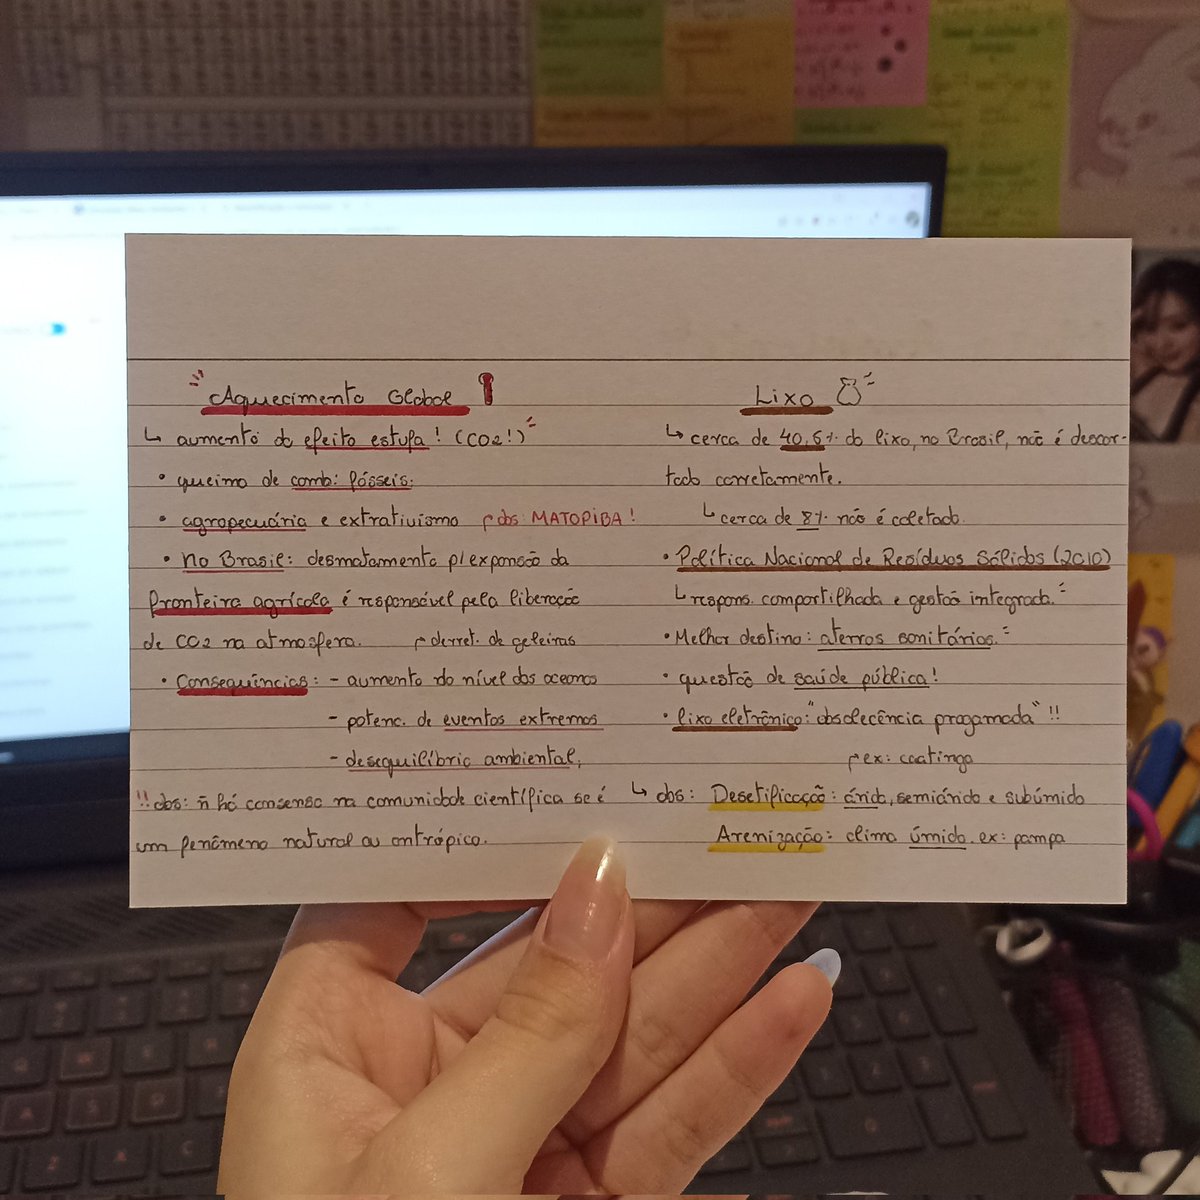 Aquecimento Global
↳ aumento do efeito estufa! (CO2!)
• queima de comb. fósseis.
• agropecuária e extrativismo ↱obs: MATOPIBA!
• No Brasil: desmatamento p/ expansão da
fronteira agrícola é responsável pela liberação
de CO2 na atmosfera. ↱derret. de geleiras
• Consequências: - aumento do nível dos oceanos
- potenc. de eventos extremos
- desequilíbrio ambiental,
!!obs: ñ há consenso na comunidade científica se é
um fenômeno natural ou antrópico.
Lixo
↳ cerca de 40,6% do lixo, no Brasil, não é descar-
tado corretamente.
↳ cerca de 8% não é coletado.
• Política Nacional de Resíduos Sólidos (2010)
↳ respons. compartilhada e gestão integrada.
• Melhor destino: aterros sanitários.
• questão de saúde pública!
• lixo eletrônico: "obsolecência progamada" !!
↱ex: caatinga
↳ obs: Desetificação: árido, semiárido e subúmido
Arenização: clima úmido. ex: pampa